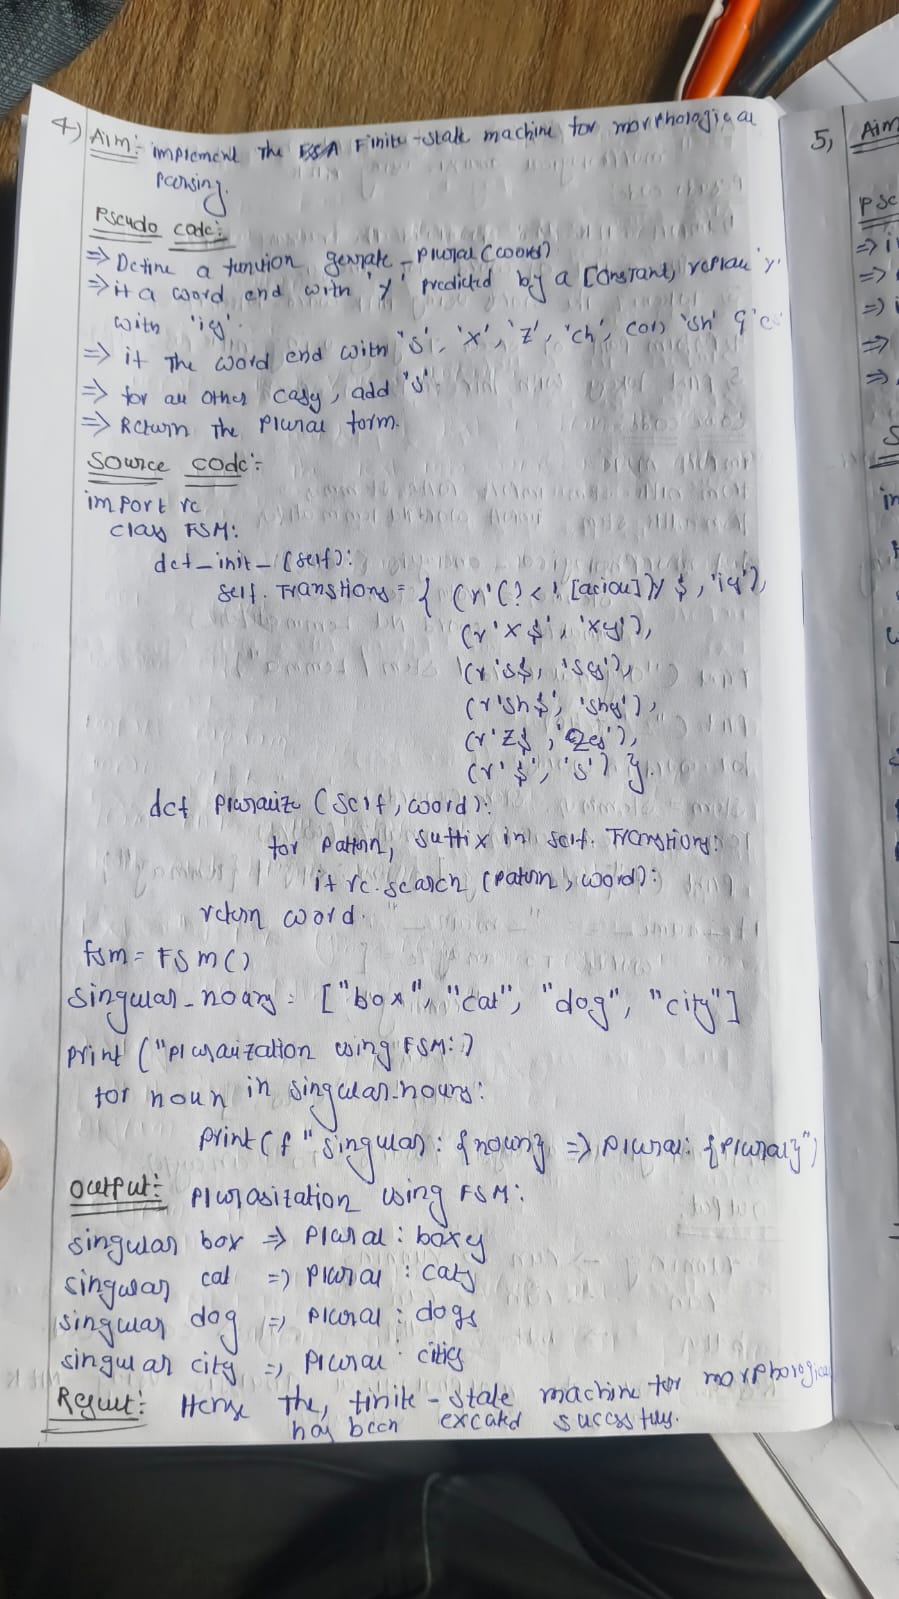 4) Aim:- implement the FSA Finite-state machine for morphological
parsing.
Pseudo code:-
⇒ Define a function genrate_plural(word)
⇒ if a word end with 'y' predicted by a constant, replace 'y'
with 'ies'.
⇒ if the word end with 's', 'x', 'z', 'ch', (or) 'sh'
⇒ for all other cases, add 's'
⇒ Return the plural form.
Source code:-
import re
class FSM:
def_init_(self):
self.Transtions = { (r'(?<![aeiou])y$, 'ies'),
(r'x$', 'xes'),
(r's$, 'ses'),
(r'sh$', 'shes'),
(r'z$, 'zes'),
(r'$', 's') }
def pluralize (self, word):
for pattern, suffix in self.Transtions:
if re.search (pattern, word):
return word.
fsm = FSM()
singular_nouns = ["box", "cat", "dog", "city"]
print ("pluralization using FSM:)
for noun in singular_nouns:
print(f "singular: {noun} => plural: {plural}")
Output:- pluralization using FSM:
singular box ⇒ plural : boxes
singular cat => plural : cats
singular dog => plural : dogs
singular city => plural : cities
Result:- Hense the, finite-state machine for morphological
has been excuted sucessfully.
5, Aim
in